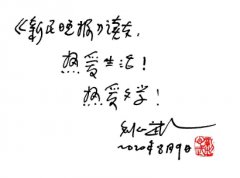 《新民晚报》读友,
热爱生活!
热爱文学!
2020年8月9日